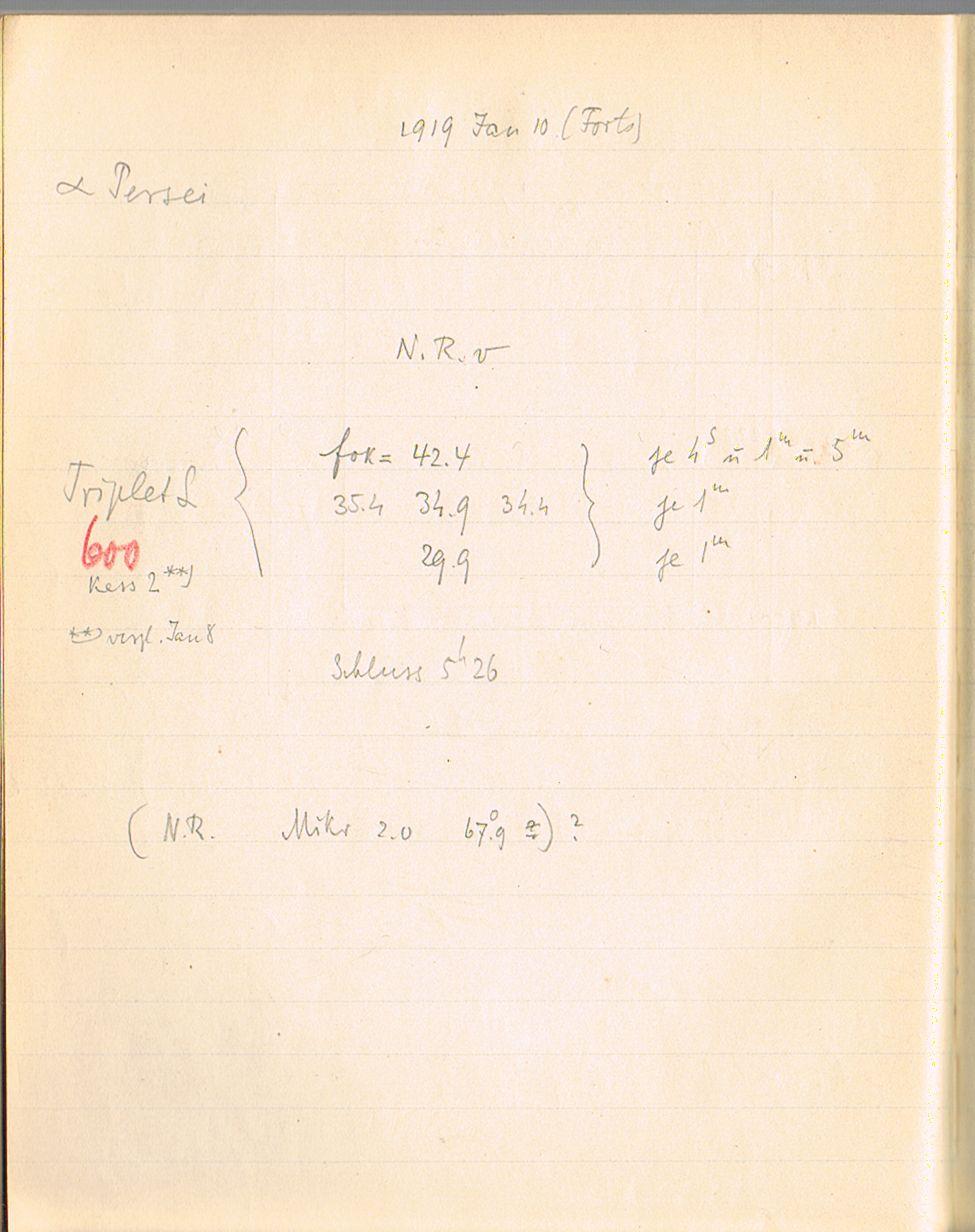 1919 Jan 10 (Forts)
α Persei
N. R. v
fok = 42.4 je 4ˢ u 1ᵐ u. 5ᵐ
Triplet
35.4 34.9 34.4 je 1ᵐ
600
29.9 je 1ᵐ
Kass 2 **)
**) vergl. Jan 8
Schluss 5ʰ 26
( N.R. Mikr 2.0 67°.9 ) ?